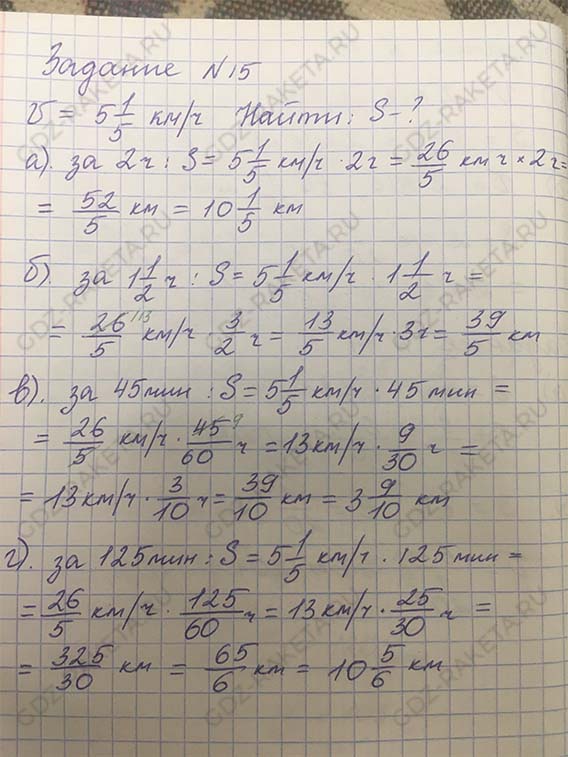 Задание N15
V = 5 1/5 км/ч Найти: S-?
а). за 2ч : S = 5 1/5 км/ч · 2г = 26/5 км ч × 2г=
= 52/5 км = 10 1/5 км
б). за 1 1/2 ч : S = 5 1/5 км/ч · 1 1/2 ч =
= 26/5 13 км/ч · 3/2 ч = 13/5 км/ч · 3г = 39/5 км
в). за 45мин : S = 5 1/5 км/ч · 45 мин =
= 26/5 км/ч · 45/60 9 ч = 13км/ч · 9/30 ч =
= 13 км/ч · 3/10 ч = 39/10 км = 3 9/10 км
г). за 125мин : S = 5 1/5 км/г · 125мин =
= 26/5 км/ч · 125/60 ч = 13 км/г · 25/30 ч =
= 325/30 км = 65/6 км = 10 5/6 км
GDZ-RAKETA.RU